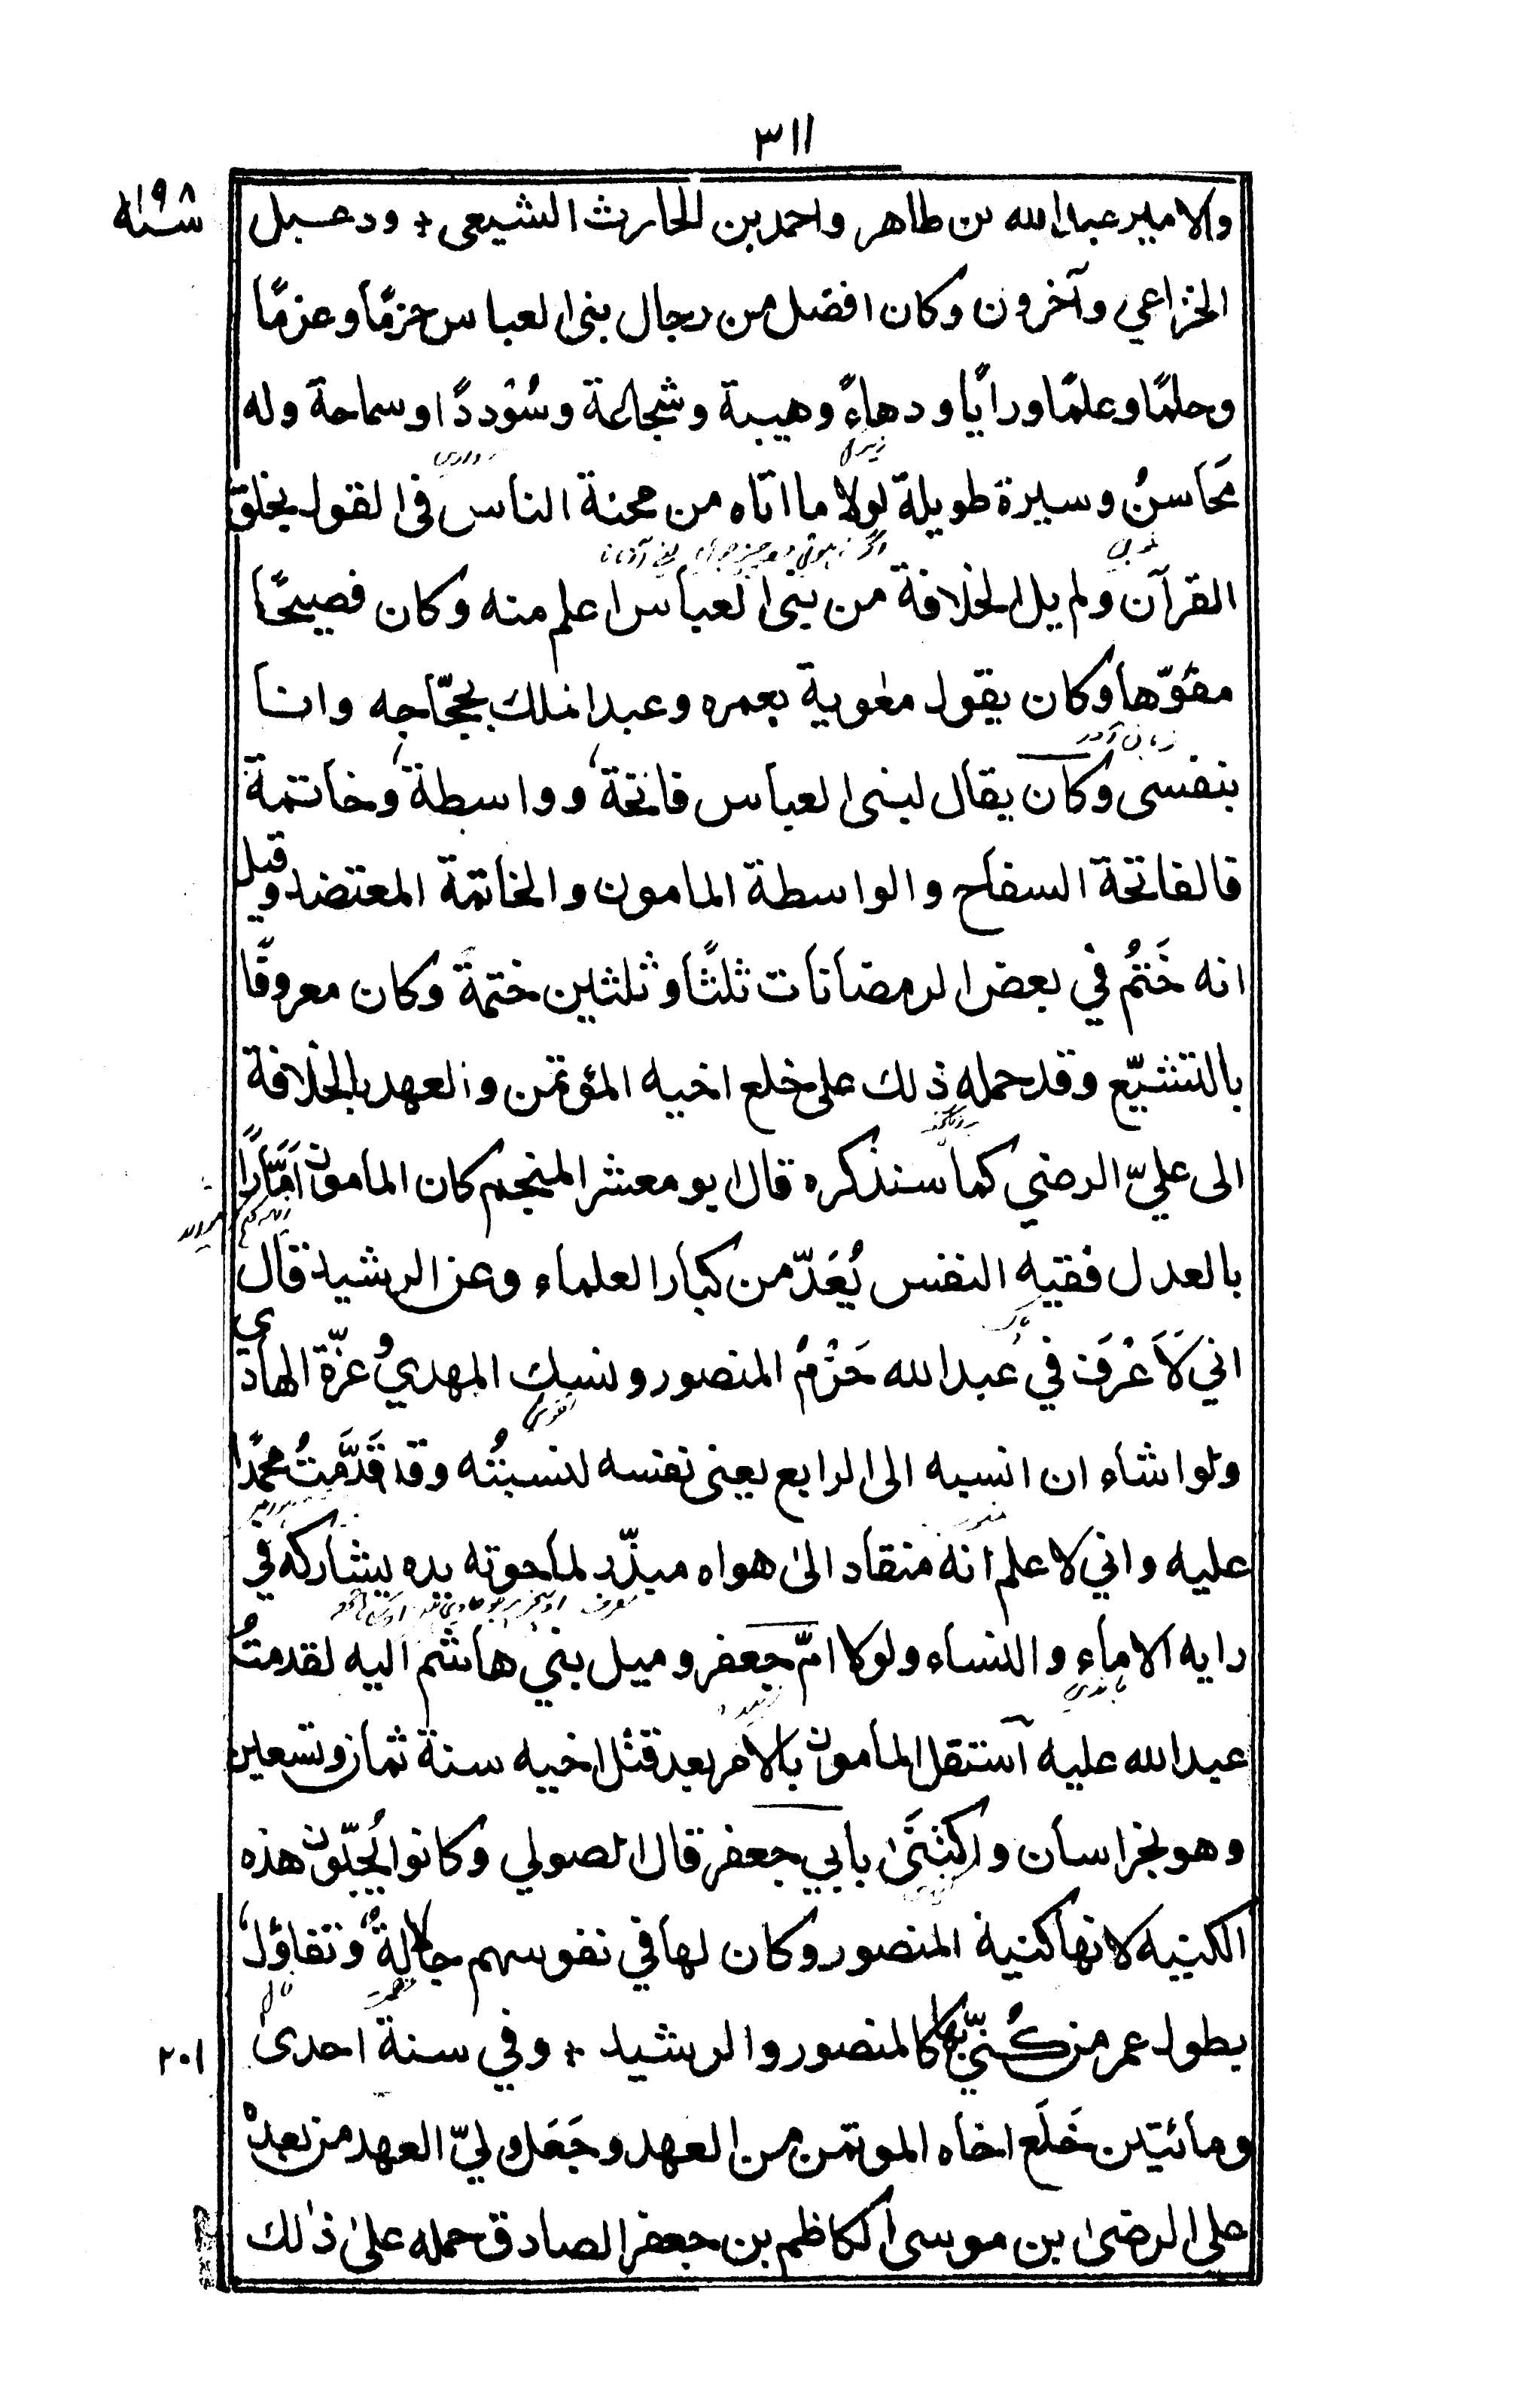 ٣١١
سنة ١٩٨
والامير عبدالله بن طاهر واحمد بن الحارث الشيعى + ودعبل
الخزاعي وآخرون وكان افضل من رجال بنى العباس حزمًا وعزمًا
وحلمًا وعلمًا ورايًا ودهاءً وهيبة وشجاعة وسُؤددًا وسماحة وله
مَحَاسنُ وسيرة طويلة لولا ما اتاه من محنة الناس فى القول بخلق
القرآن ولم يل الخلافة من بنى العباس اعلم منه وكان فصيحًا
مفوّها وكان يقول معٰوية بعمره وعبد الملك بحجّاجه وانا
بنفسى وكان يقال لبنى العباس فاتحة، وواسطة، وخاتمة
فالفاتحة السفاح والواسطة المامون والخاتمة المعتضد وقيل
انه خَتَمُ في بعض الرمضانات ثلثًا وثلثين ختمةً وكان معروفًا
بالتشيّع وقد حمله ذلك على خلع اخيه المؤتمن والعهد بالخلافة
الى عليّ الرضي كما سنذكره قال ابو معشر المنجم كان المامون اَمَّارًا
بالعدل فقيه النفس يُعَدّ من كبار العلماء وعن الرشيد قال
اني لَاَعْرَف في عبدالله حَزْمُ المنصور ونسك المهديُ وعزّة الهادي
ولو اشاء ان انسبه الى الرابع يعنى نفسه لنسبتُه وقد قَدَّمَتُ محمدًا
عليه واني لاعلم انه منقاد الىٰ هواه مبذّر لما حوته يده يشاركه في
رايه الاماء والنساء ولولا امّ جعفر وميل بني هاشم اليه لقدمتُ
عبدالله عليه آستقل المامون بالامر بعد قتل اخيه سنة ثمان وتسعين
وهو بخراسان واكتَنَىٰ بأبي جعفر قال الصولي وكانوا يُحِبّون هذه
الكنيه لانها كنية المنصور وكان لها في نفوسهم جلالةٌ، وتفاؤل،
بطول عمر من كُنّيَ بها كالمنصور والرشيد + وفي سنة احدى
٢٠١
ومائتين خَلَع اخاه الموتمن من العهد وجَعَل وليّ العهد من بعده
على الرضىٰ بن موسى الكاظم بن جعفر الصادق حمله علىٰ ذٰلك